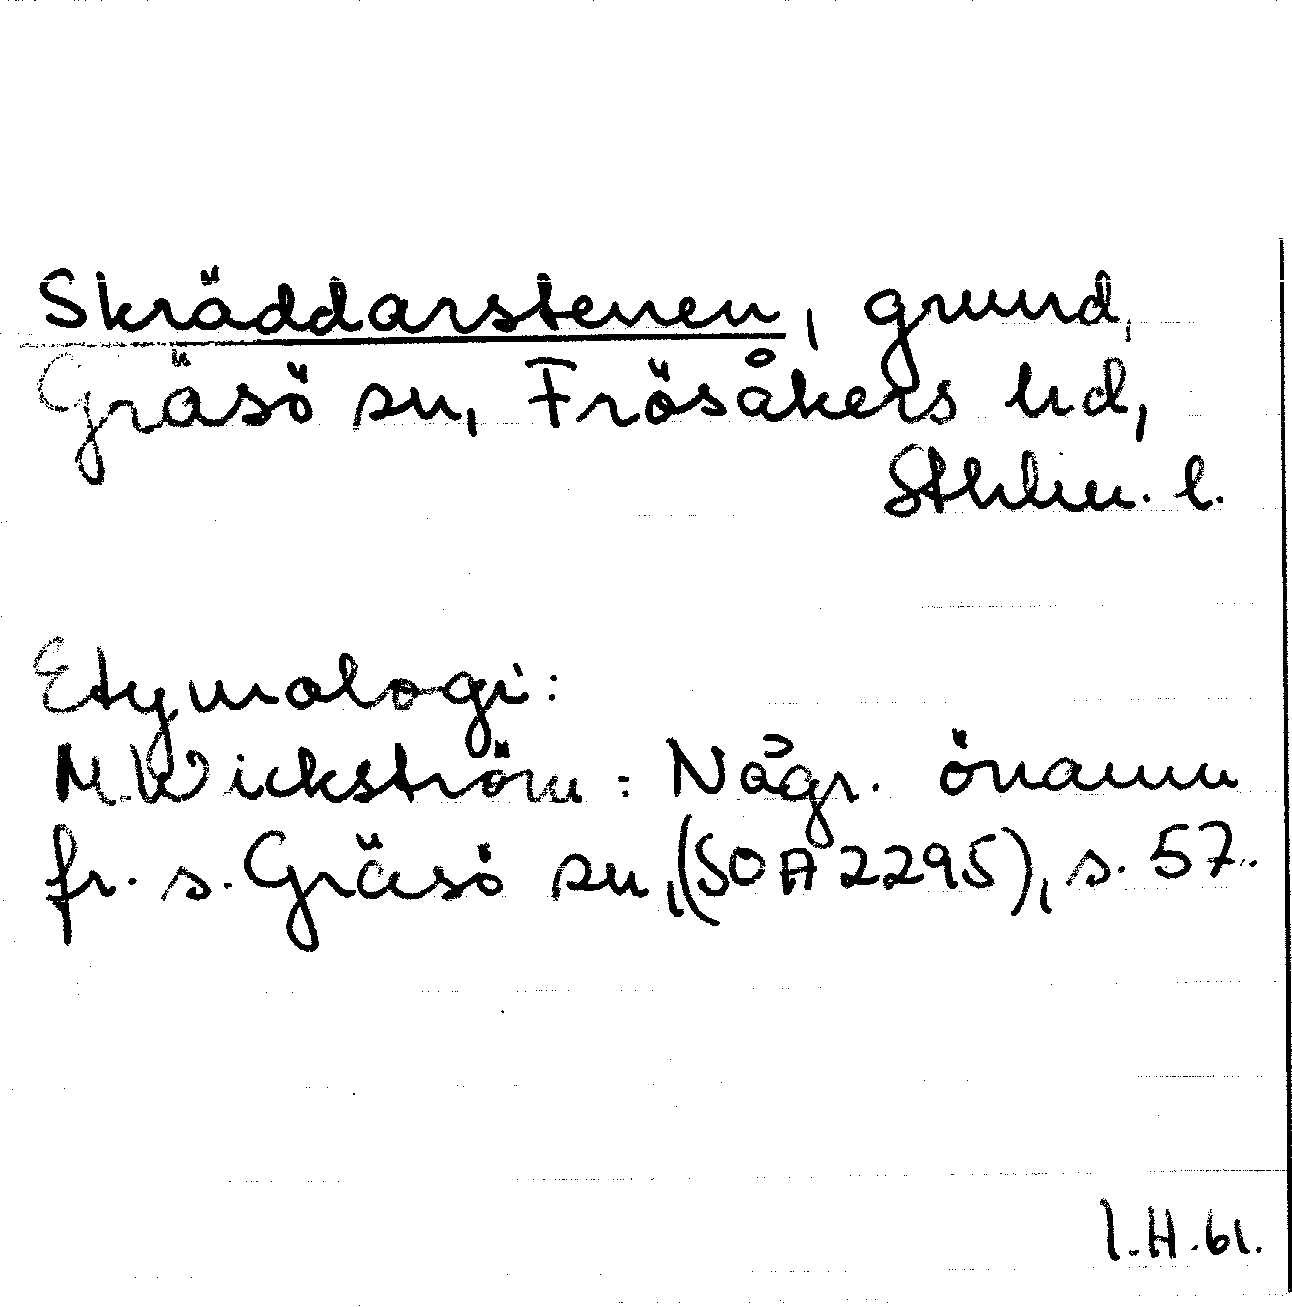 Skräddarstenen, grund,
Gräsö sn, Frösåkers hd,
Sthlm. l.
Etymologi:
M. Wickström: Någr. önamn
fr. s. Gräsö sn, (SOA 2295), s. 57.
I.H.61.